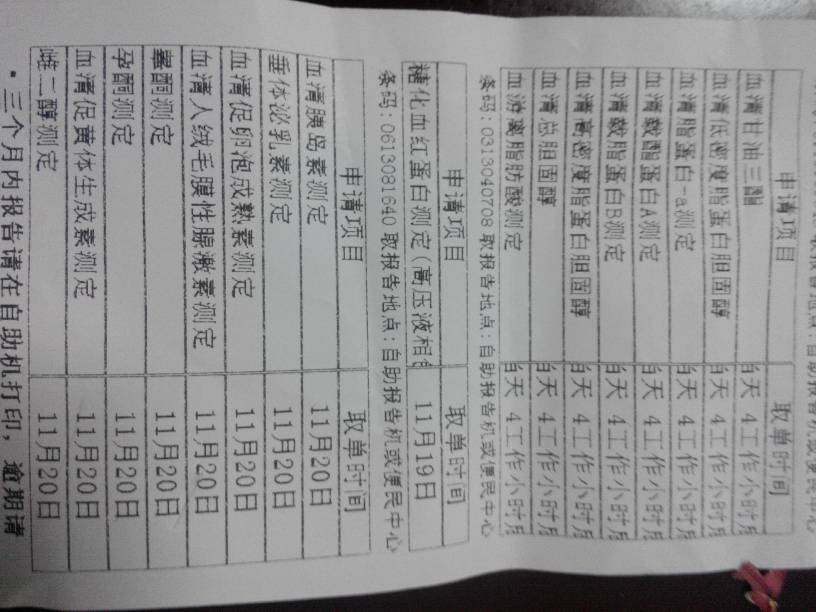 取报告地点：自助报告机或便民中心
申请项目 取单时间
血清甘油三酯 当天 4工作小时
血清低密度脂蛋白胆固醇 当天 4工作小时
血清脂蛋白-a测定 当天 4工作小时
血清载脂蛋白A测定 当天 4工作小时
血清载脂蛋白B测定 当天 4工作小时
血清高密度脂蛋白胆固醇 当天 4工作小时
血清总胆固醇 当天 4工作小时
血清游离脂肪酸测定 当天 4工作小时
条码：0313040708 取报告地点：自助报告机或便民中心
申请项目 取单时间
糖化血红蛋白测定(高压液相 11月19日
条码：0613081640 取报告地点：自助报告机或便民中心
申请项目 取单时间
血清胰岛素测定 11月20日
垂体泌乳素测定 11月20日
血清促卵泡成熟素测定 11月20日
血清人绒毛膜性腺激素测定 11月20日
睾酮测定 11月20日
孕酮测定 11月20日
血清促黄体生成素测定 11月20日
雌二醇测定 11月20日
三个月内报告请在自助机打印，逾期请